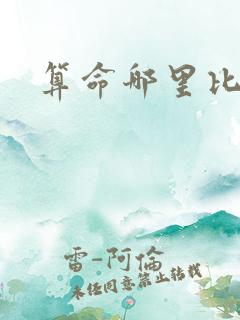 算命哪里比
雷-阿倫
未经同意禁止转载